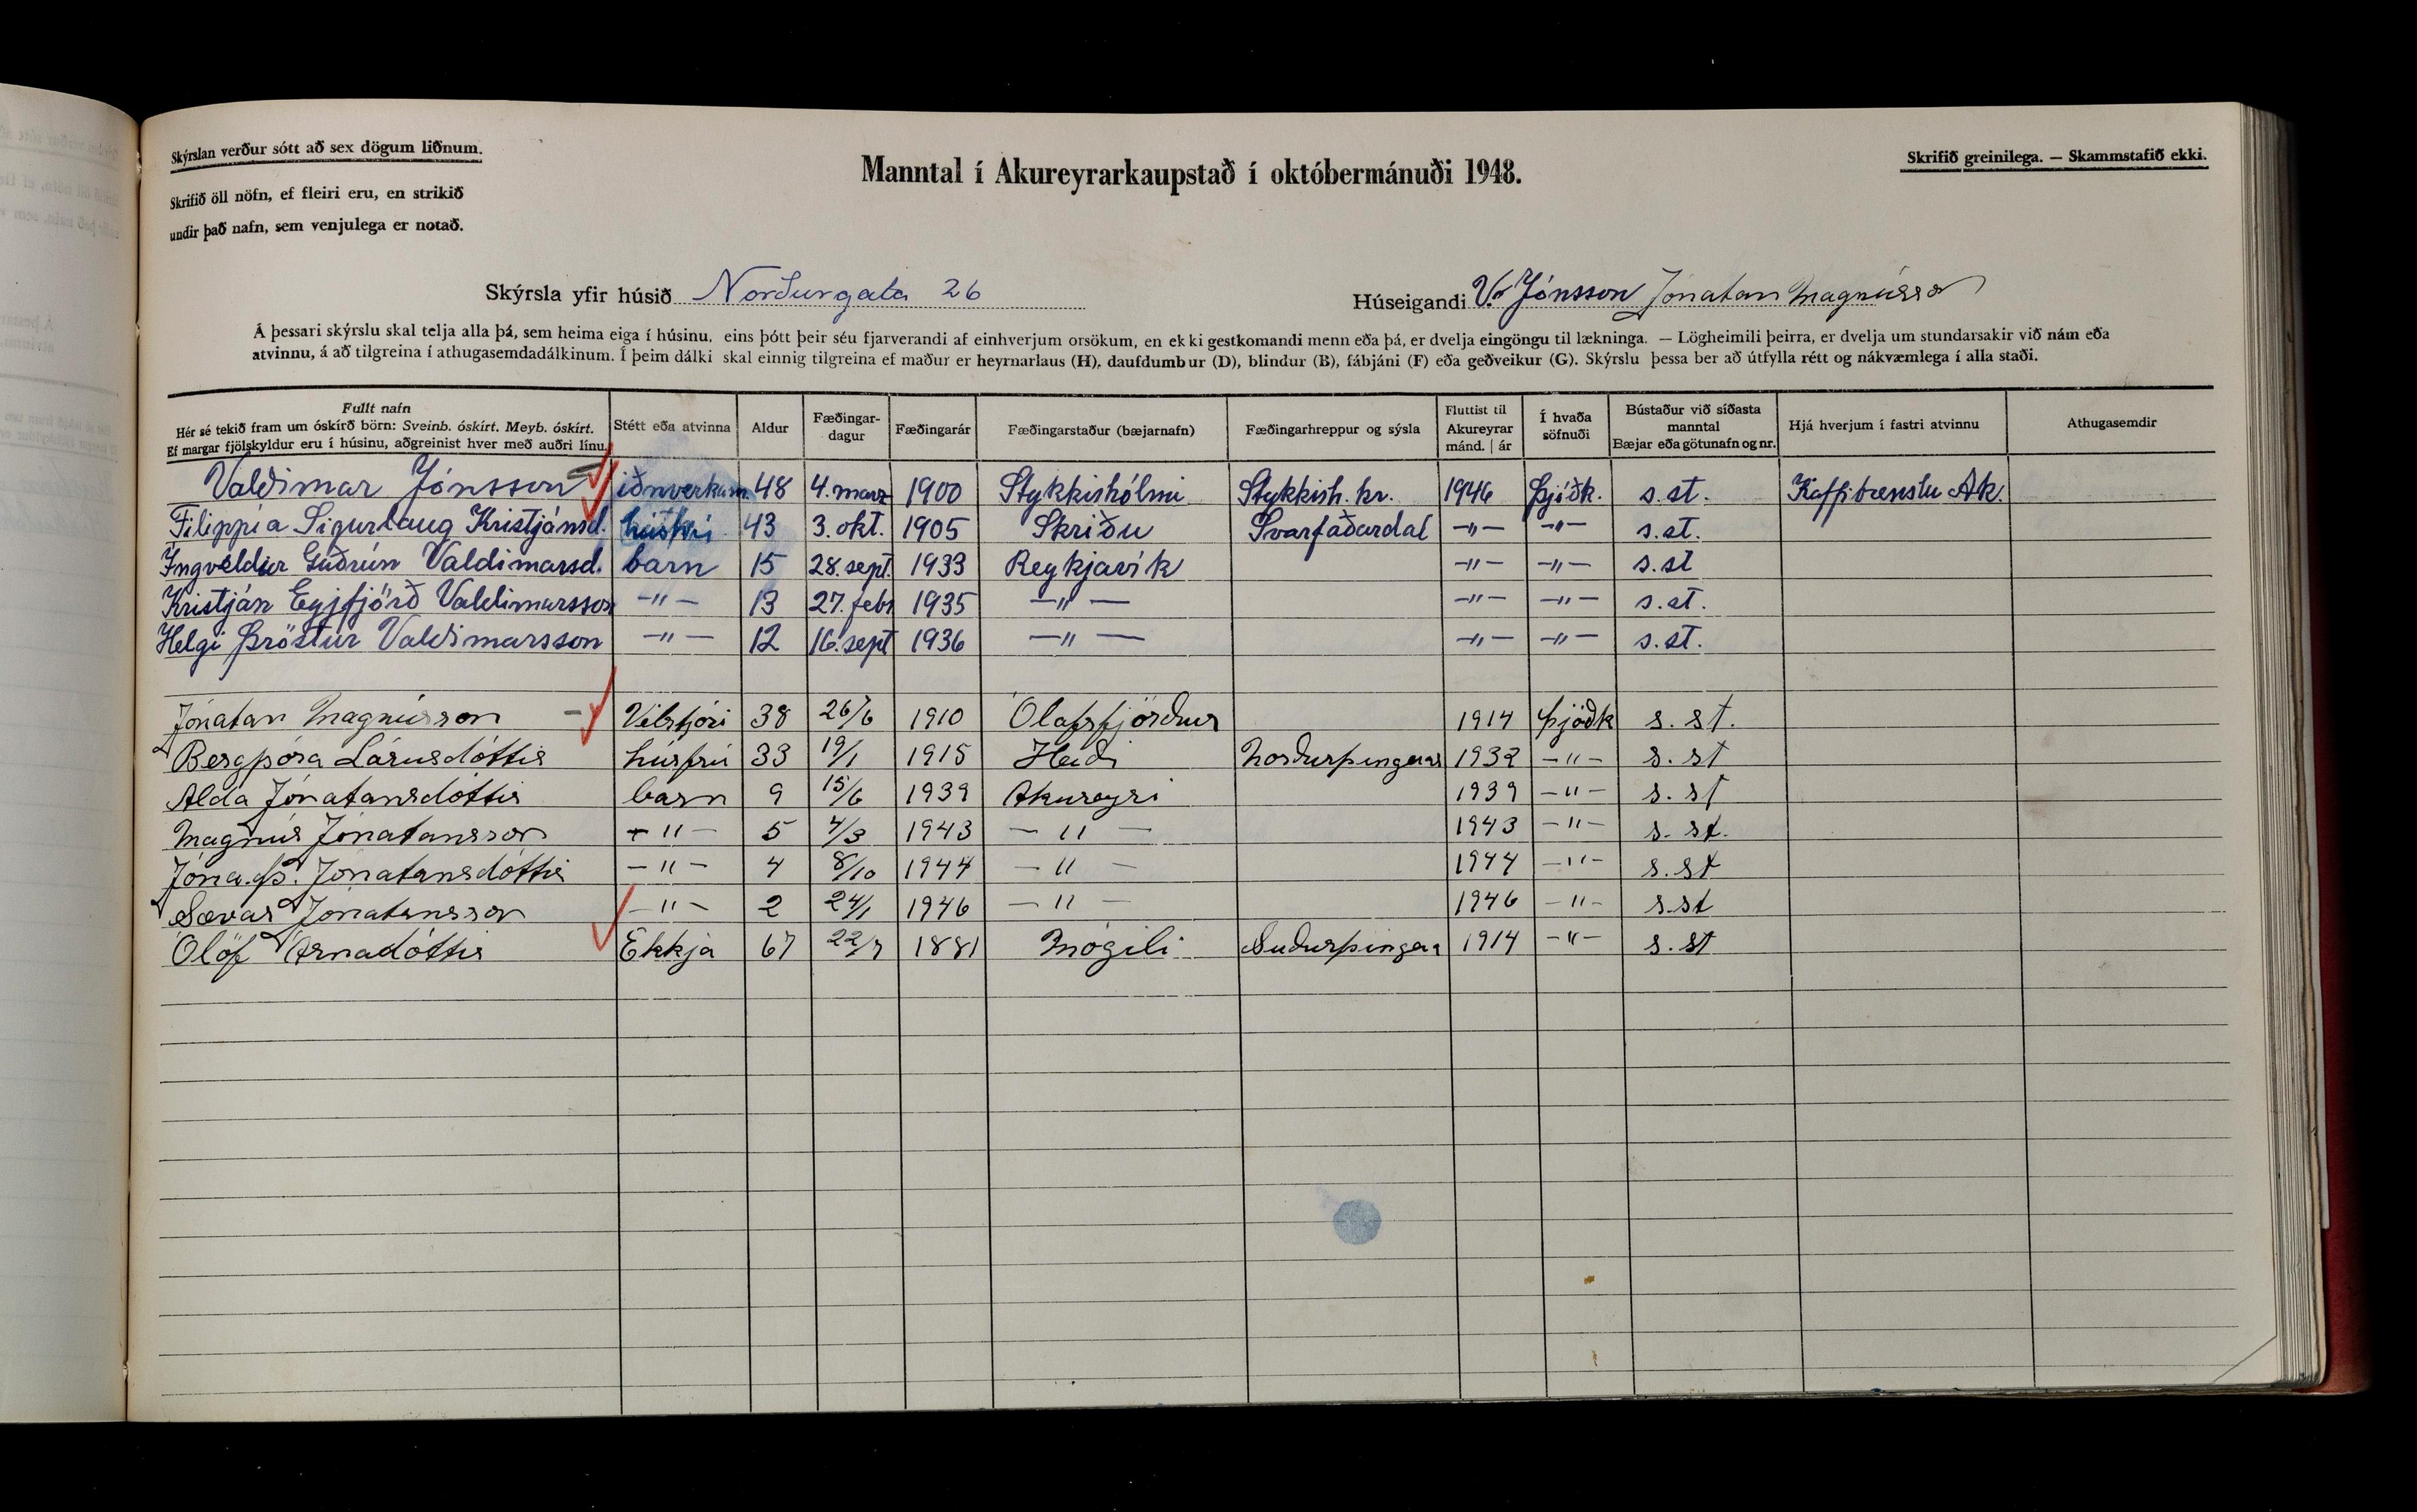 Skýrslan verður sótt að sex dögum liðnum.
Skrifið öll nöfn, ef fleiri eru, en strikið
undir það nafn, sem venjulega er notað.
Manntal í Akureyrarkaupstað í októbermánuði 1948.
Skrifið greinilega. — Skammstafið ekki.
Skýrsla yfir húsið Norðurgata 26
Húseigandi V. Jónsson Jónatan Magnússon
Á þessari skýrslu skal telja alla þá, sem heima eiga í húsinu, eins þótt þeir séu fjarverandi af einhverjum orsökum, en ekki gestkomandi menn eða þá, er dvelja eingöngu til lækninga. — Lögheimili þeirra, er dvelja um stundarsakir við nám eða
atvinnu, á að tilgreina í athugasemdadálkinum. Í þeim dálki skal einnig tilgreina ef maður er heyrnarlaus (H), daufdumbur (D), blindur (B), fábjáni (F) eða geðveikur (G). Skýrslu þessa ber að útfylla rétt og nákvæmlega í alla staði.
Fullt nafn
Hér sé tekið fram um óskírð börn: Sveinb. óskírt. Meyb. óskírt.
Ef margar fjölskyldur eru í húsinu, aðgreinist hver með auðri línu.
Stétt eða atvinna
Aldur
Fæðingar-
dagur
Fæðingarár
Fæðingarstaður (bæjarnafn)
Fæðingarhreppur og sýsla
Fluttist til
Akureyrar
mánd. | ár
Í hvaða
söfnuði
Bústaður við síðasta
manntal
Bæjar eða götunafn og nr.
Hjá hverjum í fastri atvinnu
Athugasemdir
Valdimar Jónsson iðnverkam. 48 4. marz 1900 Stykkishólmi Stykkish. hr. 1946 Þjóðk. s. st. Kaffibrenslu Ak.
Filippía Sigurlaug Kristjánsd. húsfrú 43 3. okt. 1905 Skriðu Svarfaðardal —"— —"— s. st.
Ingveldur Guðrún Valdimarsd. barn 15 28. sept. 1933 Reykjavík —"— —"— s. st
Kristján Eyjfjörð Valdimarsson —"— 13 27. febr 1935 —"— —"— —"— s. st.
Helgi Þröstur Valdimarsson —"— 12 16. sept 1936 —"— —"— —"— s. st.
Jónatan Magnússon Vélstjóri 38 26/6 1910 Ólafsfjörður 1914 Þjóðk s. st.
Bergþóra Lárusdóttir húsfrú 33 19/1 1915 Heiði Norðurþingeyar 1932 —"— s. st
Alda Jónatansdóttir barn 9 15/6 1939 Akureyri 1939 —"— s. st
Magnús Jónatansson —"— 5 4/3 1943 —"— 1943 —"— s. st.
Jóna. Þ. Jónatansdóttir —"— 4 8/10 1944 —"— 1944 —"— s. st
Sævar Jónatansson —"— 2 24/1 1946 —"— 1946 —"— s. st
Ólöf Árnadóttir Ekkja 67 22/7 1881 Mógili Suðurþingey 1914 —"— s. st